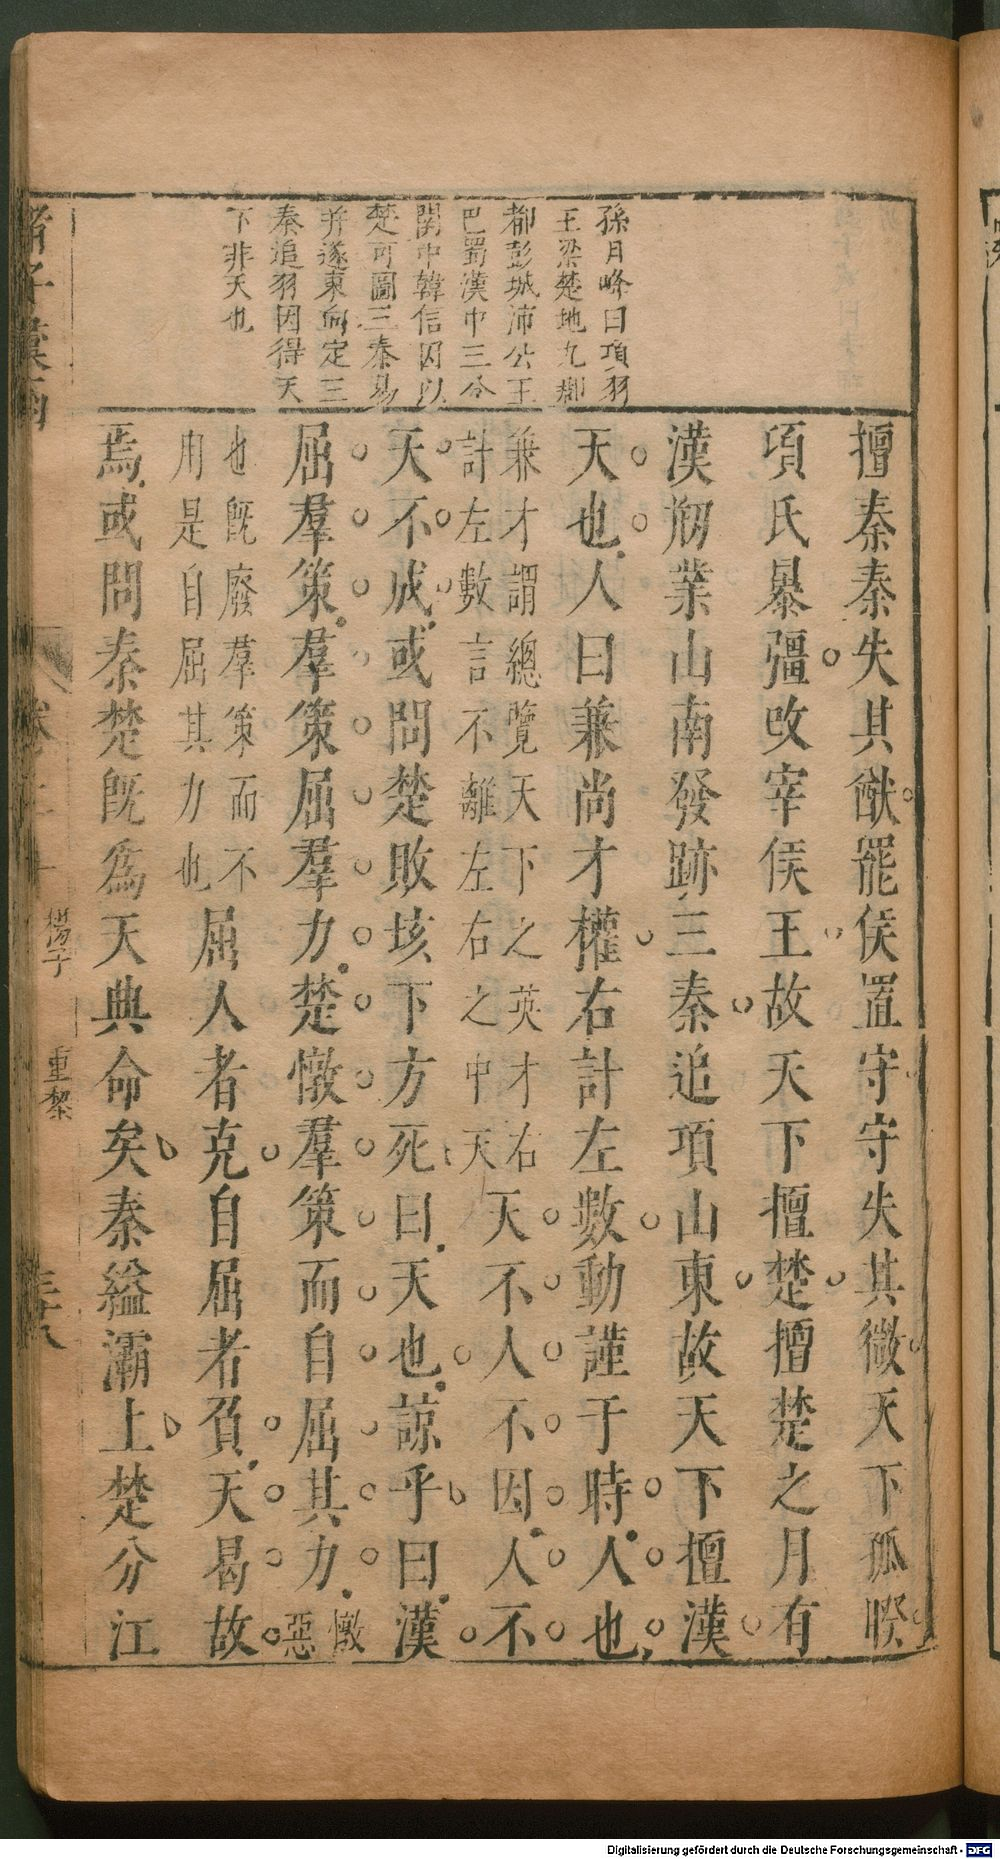 孫月峰曰項羽
王梁楚地九郡
都彭城沛公王
巴蜀漢中三分
関中韓信因以
楚可圖三秦易
并遂東向定三
秦追羽因得天
下非天也
擅秦秦失其猷罷侯置守守失其微天下孤睽
項氏暴彊改宰侯王故天下擅楚擅楚之月有
漢剏業山南發跡三秦追項山東故天下擅漢
天也人曰兼尚才權右計左數動謹于時人也
兼才謂總覽天下之英才右
計左數言不離左右之中天
天不人不因人不
天不成或問楚敗垓下方死曰天也諒乎曰漢
屈羣策羣策屈羣力楚憞羣策而自屈其力
憞
惡
也旣廢羣策而不
用是自屈其力也
屈人者克自屈者負天曷故
焉或問秦楚旣為天典命矣秦縊灞上楚分江
諸子彙函
卷二十
楊子
重黎
三十八
Digitalisierung gefördert durch die Deutsche Forschungsgemeinschaft - DFG